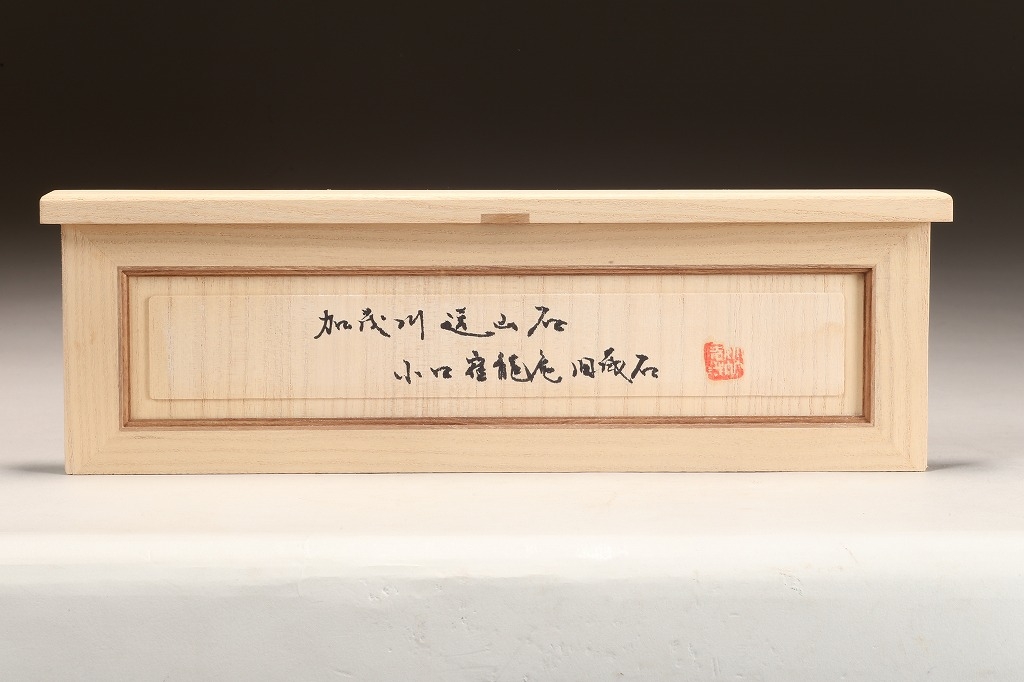 加茂川遠山石
小口龍庵旧蔵石